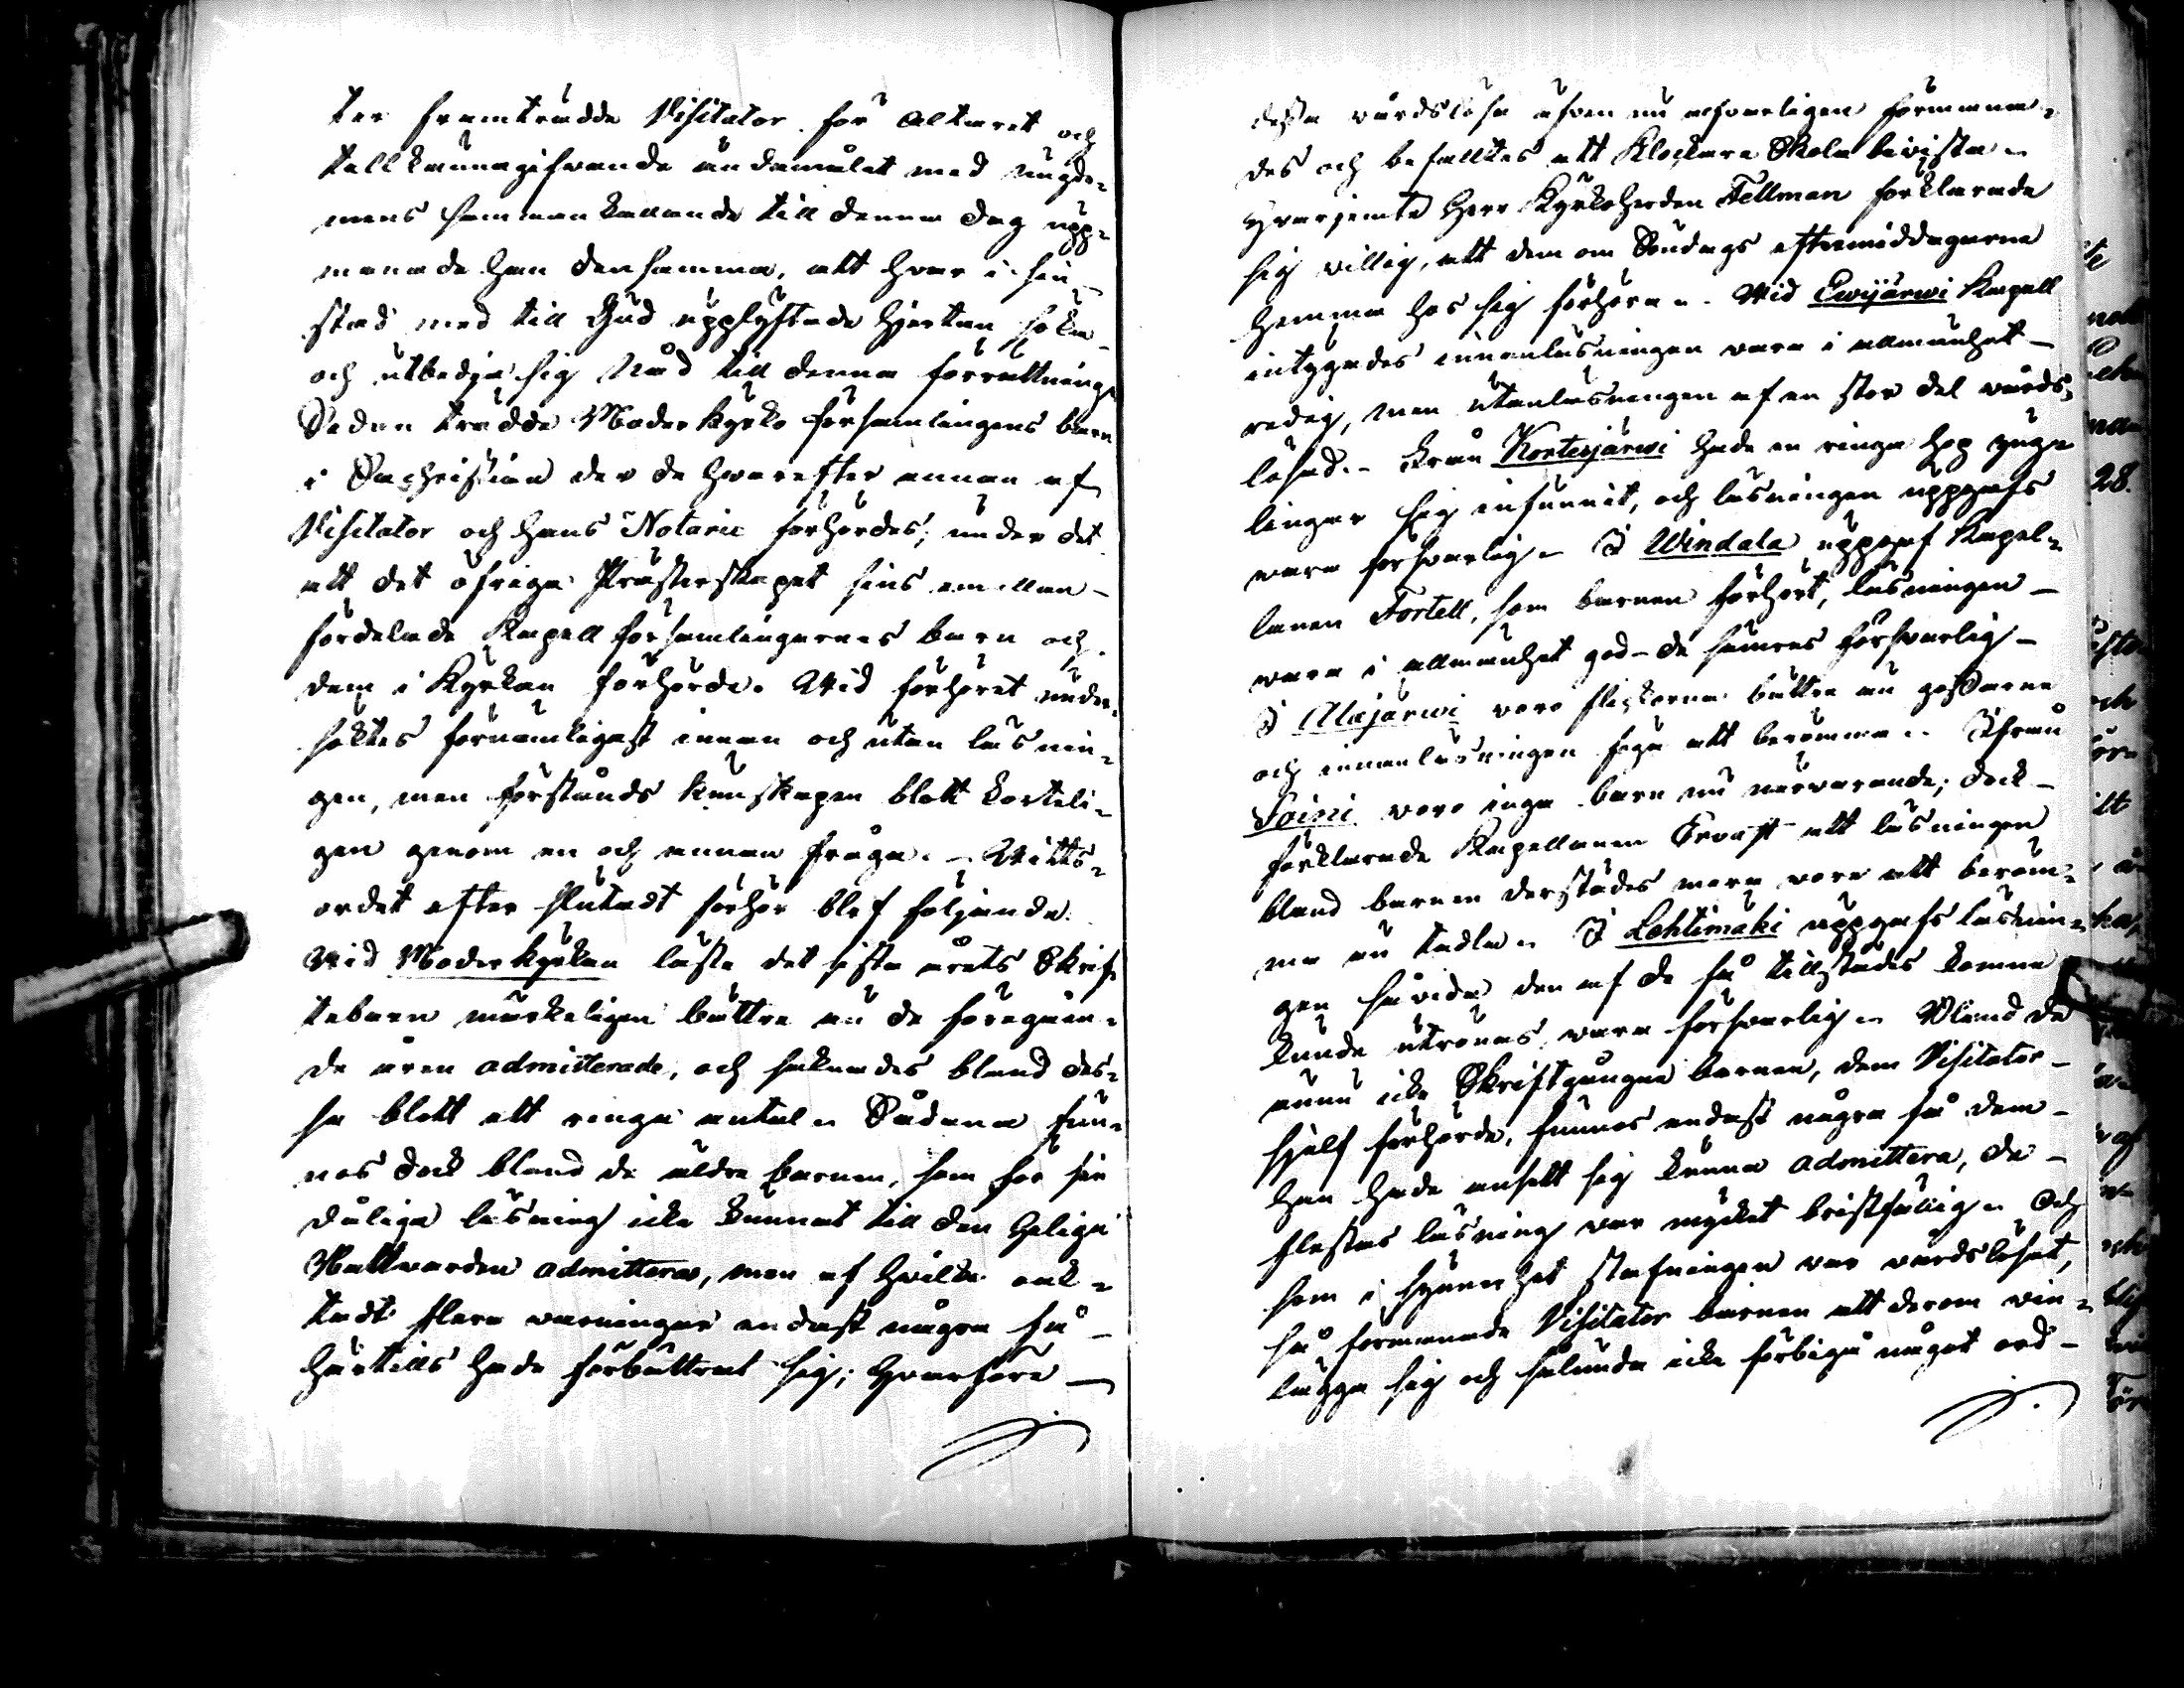 ter framträdde Visitator för Altaret och
tillkännagifwande ändamålet med ungdo-
mens sammankallande till denna dag upp-
manade han densamma, att hvar i sin
stad med till Gud upplyftade hjertan söka
och utbedja sig Nåd till denna förrättning.
Sedan trädde Moderkyrko församlingens barn
i Sachristian der de hwarefter annan af
Visitator och hans Notarie förhördes; under det
att det öfriga Prästerskapet sins emillan
fördelade Kapell församlingarnes barn och
dem i Kyrkan förhörde. Wid förhöret under-
söktes förnämligast innan och utan läsnin-
gen, men förstånds kunskapen blott korteli-
gen genom en och annan fråga. – Witts-
ordet efter slutadt förhör blef följande.
Wid Moderkyrkan läste det sista årets Skrif-
tebarn märkeligen bättre än de föregåen-
de åren admitterade, och saknades bland des-
sa blott ett ringa antal. Sådana fun-
nos dock bland de äldre barnen, som för sin
dåliga läsning icke kunnat till den Heliga
Nattwarden admitteras, men af hvilka oak-
tadt flera varningar endast några få
härtills hade förbättrat sig; hvarföre
dessa vårdslösa äfven nu alfvarligen förmana-
des och befalltes att Klockare Skola bivista.
Hvarjemte Herr Kyrkoherden Fellman förklarade
sig villig, att dem om Söndags eftermiddagarna
hemma hos sig förhöra. Wid Ewijärwi Kapell
intygades innanläsningen vara i allmänhet
redig, men utanläsningen af en stor del vårds-
lösad. – Från Kortesjärwi hade en ringa hop yng-
lingar sig infunnit, och läsningen uppgafs
vara försvarlig. I Windala uppgaf Kapel-
lanen Fortell, som barnen förhört, läsningen
vara i allmänhet god – de sämres försvarlig –
I Alajärwi voro flickorna bättre än gossarne
och innanläsningen föga att berömma. Ifrån
Soini voro inga barn nu närvarande; dock
förklarade Kapellanen Ervast att läsningen
bland barnen derstädes mera vore att beröm-
ma än tadla. I Lehtimäki uppgafs läsnin-
gen såvida den af de få tillstädes komna
kunde utrönas, vara försvarlig. Bland de
ännu icke Skriftgångna barnen, dem Visitator
sjelf förhörde, funnos endast några få dem
han hade ansett sig kunna admittera, de
flestas läsning var mycket bristfällig. Och
som i synnerhet stafningen var vårdslösat,
så förmanade Visitator barnen att derom vin-
lägga sig och sålunda icke förbigå något ord –
28.